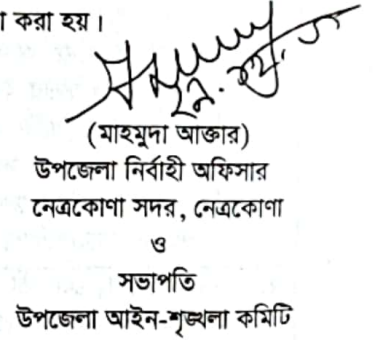 করা হয়।
(মাহমুদা আক্তার)
উপজেলা নির্বাহী অফিসার
নেত্রকোণা সদর, নেত্রকোণা
ও
সভাপতি
উপজেলা আইন-শৃঙ্খলা কমিটি